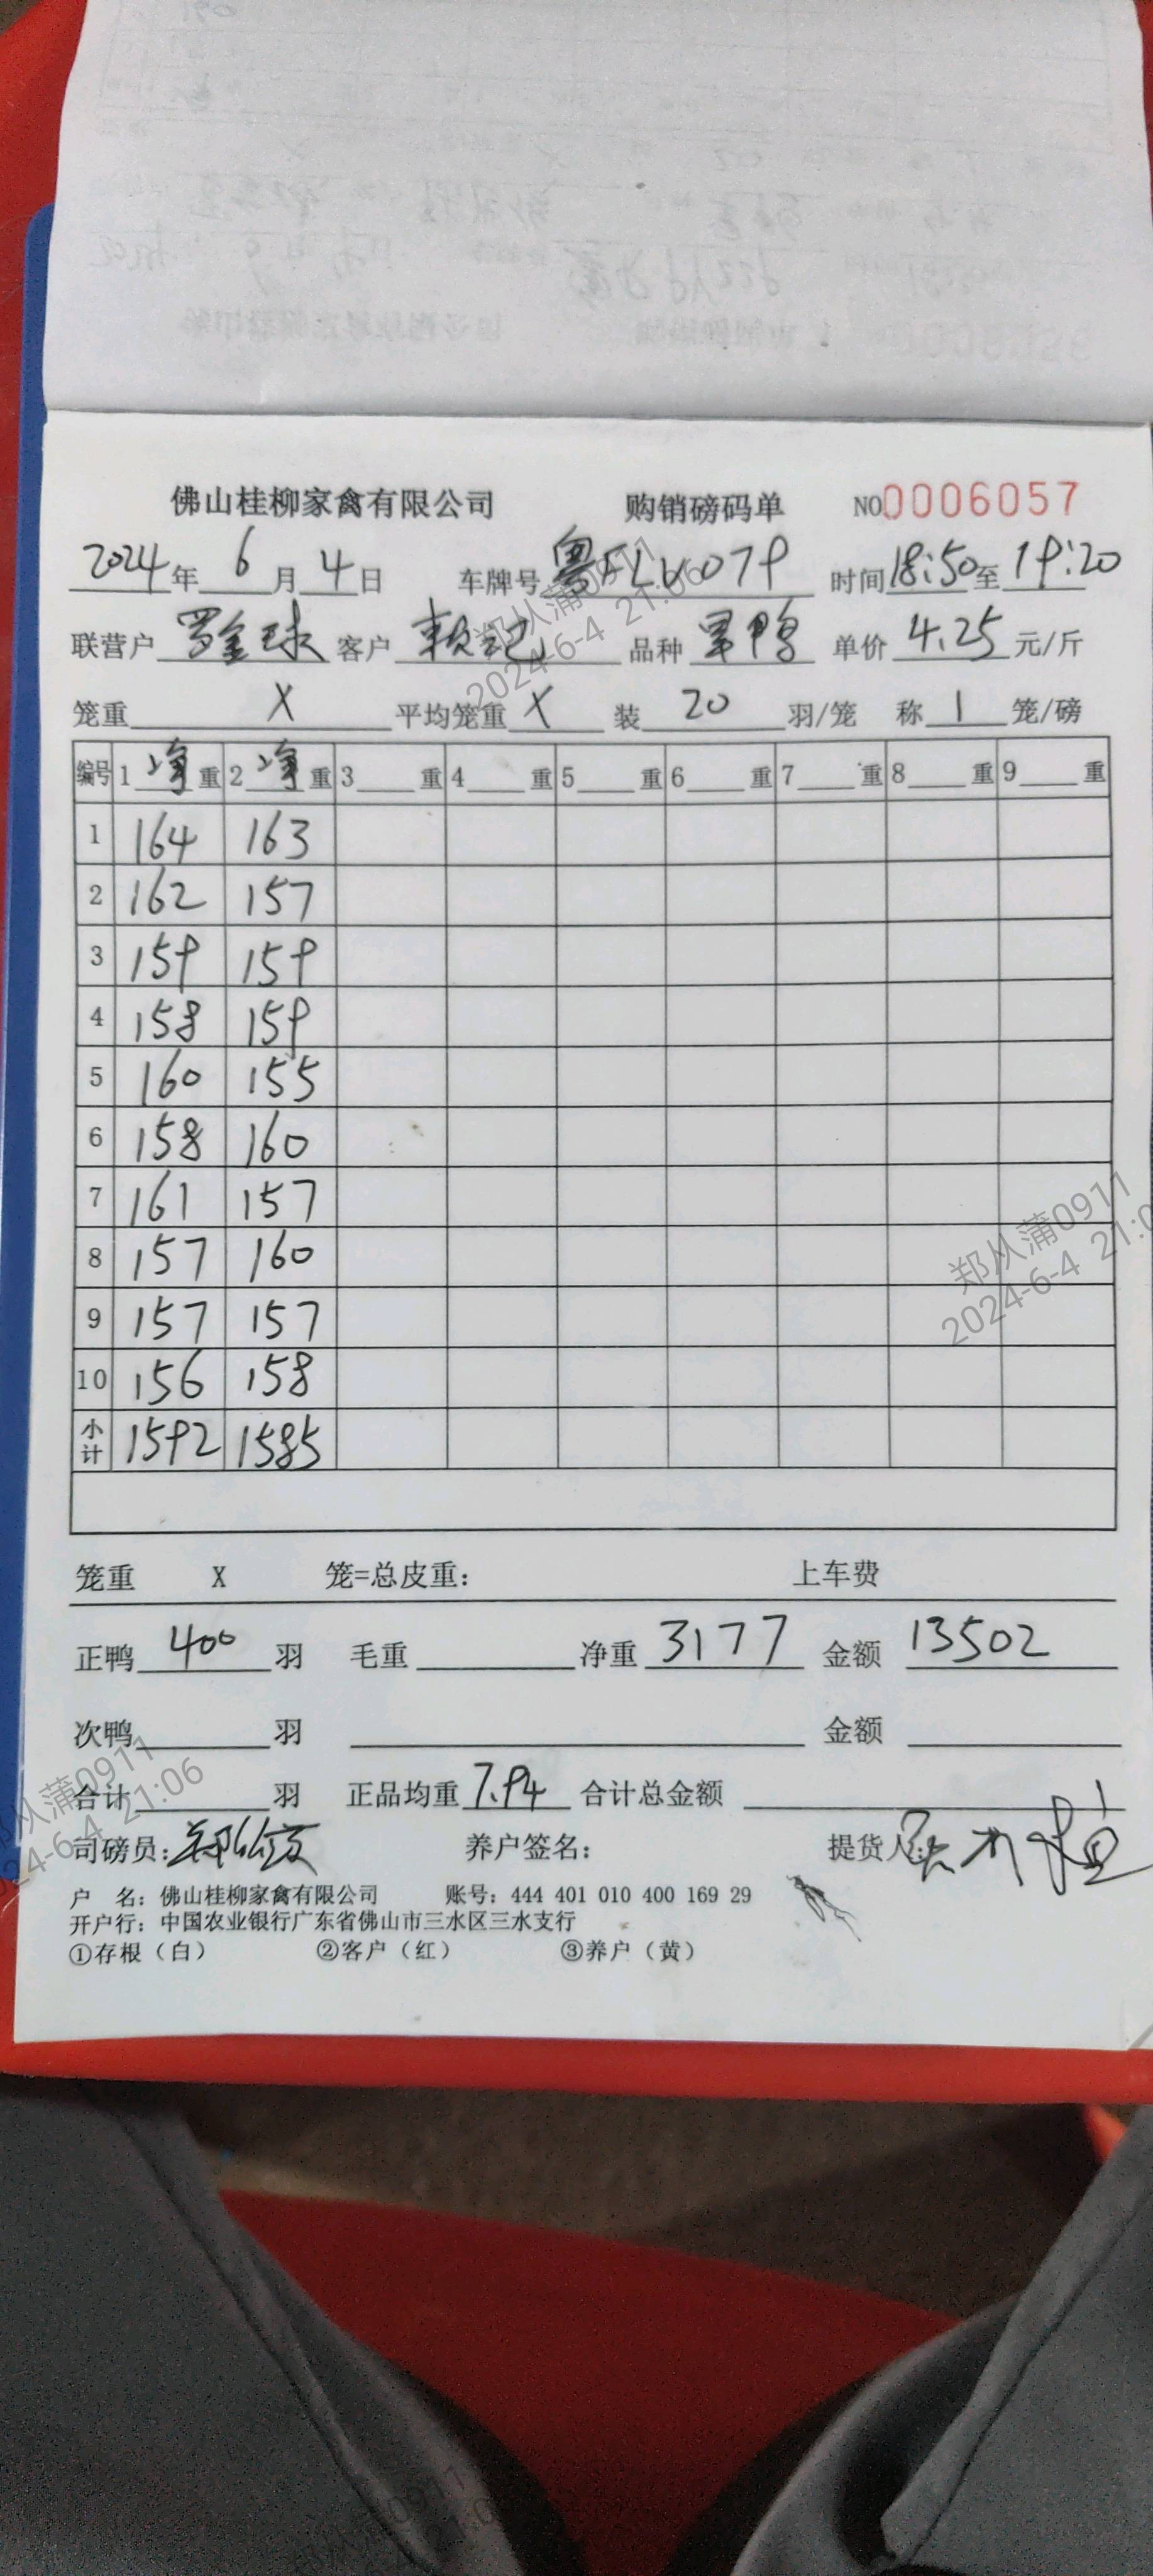 佛山桂柳家禽有限公司 购销磅码单 NO0006057
2024年 6月 4日 车牌号 粤 079 时间 18:50 至 19:20
联营户 罗金球 客户 赖 品种 旱鸭 单价 4.25 元/斤
笼重 X 平均笼重 X 装 20 羽/笼 称 1 笼/磅
编号 1 净 重 2 净 重 3 重 4 重 5 重 6 重 7 重 8 重 9 重
1 164 163
2 162 157
3 159 159
4 158 159
5 160 155
6 158 160
7 161 157
8 157 160
9 157 157
10 156 158
小计 1592 1585
笼重 X 笼=总皮重： 上车费
正鸭 400 羽 毛重 净重 3177 金额 13502
次鸭 羽 金额
合计 羽 正品均重 7.94 合计总金额
司磅员： 养户签名： 提货人：
户 名：佛山桂柳家禽有限公司 账号：444 401 010 400 169 29
开户行：中国农业银行广东省佛山市三水区三水支行
①存根（白） ②客户（红） ③养户（黄）
郑从蒲0911
2024-6-4 21:06
郑从蒲0911
2024-6-4 21:0
从蒲0911
24-6-4 21:06